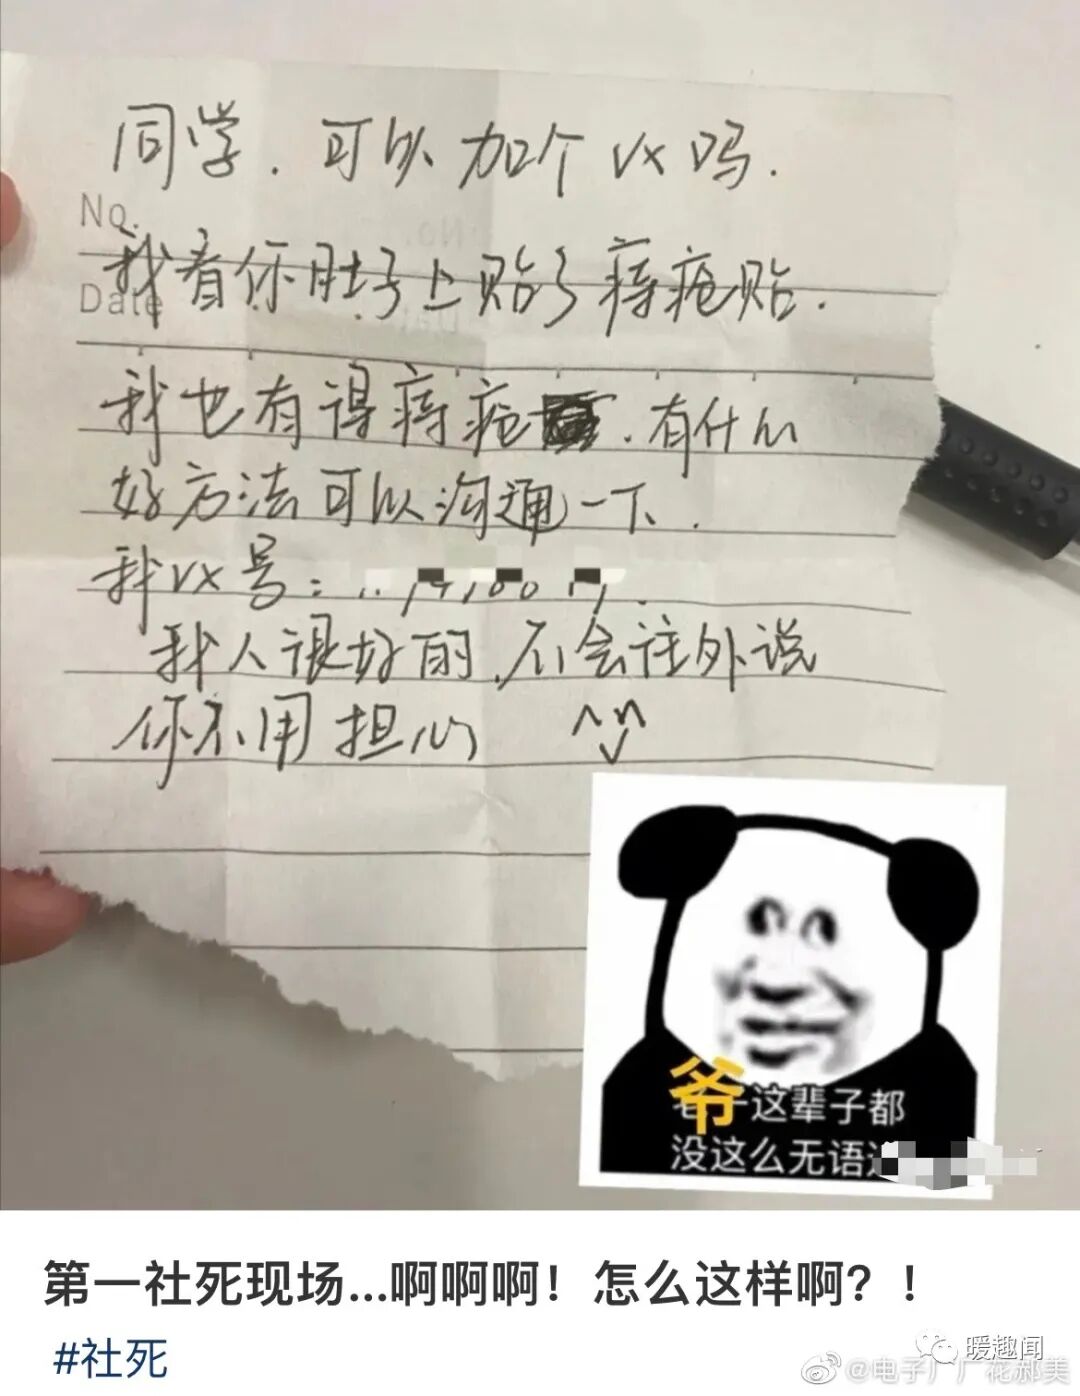 同学.可以加个vx吗.
No.
我看你肚子上贴了痔疮贴.
Date
我也有得痔疮.有什么
好方法可以沟通一下.
我vx号:
我人很好的.不会往外说
你不用担心
爷这辈子都
没这么无语
第一社死现场...啊啊啊!怎么这样啊?!
#社死
暖趣闻
@电子厂厂花郝美